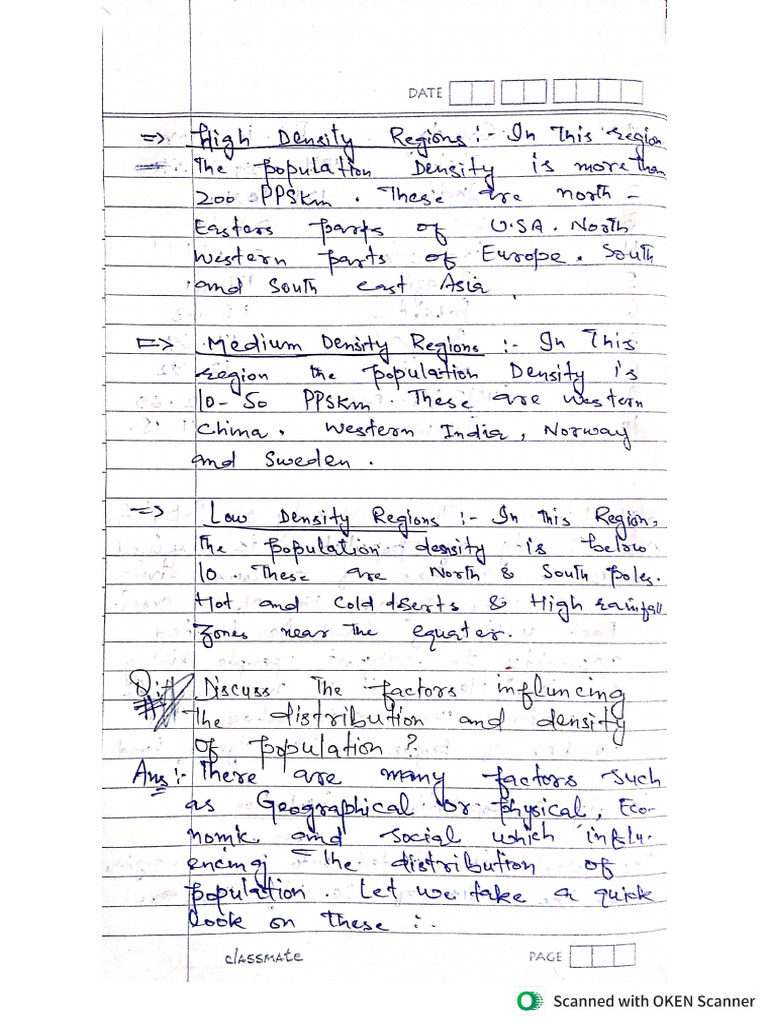 DATE
=> High Density Regions :- In This region
The population Density is more than
200 PPSKm. These are north -
Easters parts of U.S.A. North
Western parts of Europe. South
and South east Asia
=> Medium Density Regions :- In This
region the population Density is
10-50 PPSKm. These are western
China. Western India, Norway
and Sweden.
=> Low Density Regions :- In this Region,
The population density is below
10. These are North & South Poles.
Hot and cold dserts & High rainfall
Zones near The equater.
Discuss The factors influncing
The distribution and density
of population ?
Ans :- There are many factors such
as Geographical or physical, Eco-
nomic and social which influ-
encing the distribution of
population. Let we take a quick
look on these :.
classmate PAGE
Scanned with OKEN Scanner